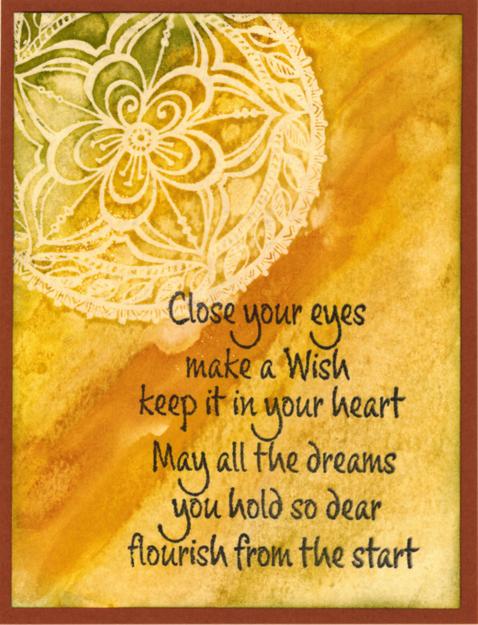 Close your eyes
make a Wish
keep it in your heart
May all the dreams
you hold so dear
flourish from the start